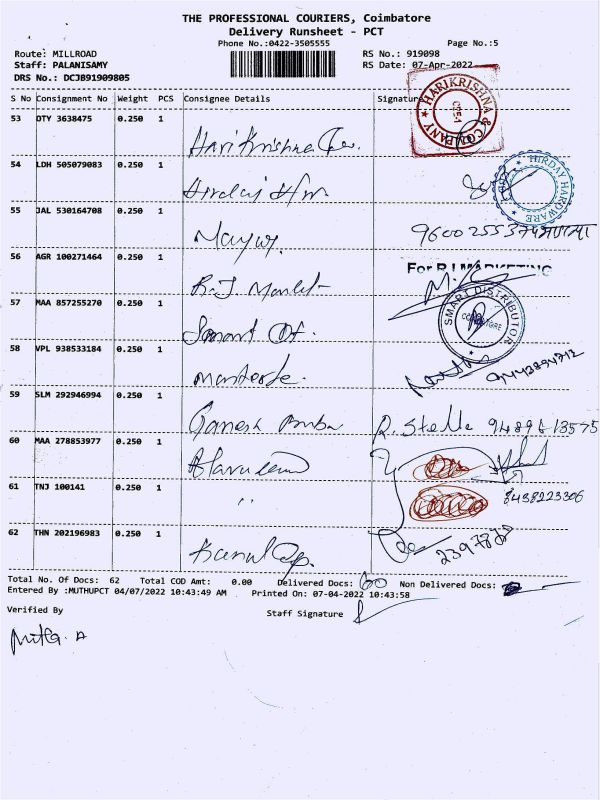 THE PROFESSIONAL COURIERS, Coimbatore
Delivery Runsheet - PCT
Phone No.:0422-3505555 Page No.:5
Route: MILLROAD RS No.: 919098
Staff: PALANISAMY RS Date: 07-Apr-2022
DRS No.: DCJB91909805
S No Consignment No Weight PCS Consignee Details Signature
HARIKRISHNA & COMPANY
53 OTY 3638475 0.250 1
Harikrishna &co.
54 LDH 505079083 0.250 1
HIRDAY HARDWARE
Hirday H/w
55 JAL 530164708 0.250 1
56 AGR 100271464 0.250 1
For R J MARKETING
R.J Market
57 MAA 857255270 0.250 1
SMART DISTRIBUTOR
Smart
58 VPL 938533184 0.250 1
59 SLM 292946994 0.250 1
Ganesh R. Stella
60 MAA 278853977 0.250 1
61 TNJ 100141 0.250 1
"
8438223306
62 THN 202196983 0.250 1
Total No. Of Docs: 62 Total COD Amt: 0.00 Delivered Docs: 60 Non Delivered Docs:
Entered By :MUTHUPCT 04/07/2022 10:43:49 AM Printed On: 07-04-2022 10:43:58
Verified By Staff Signature